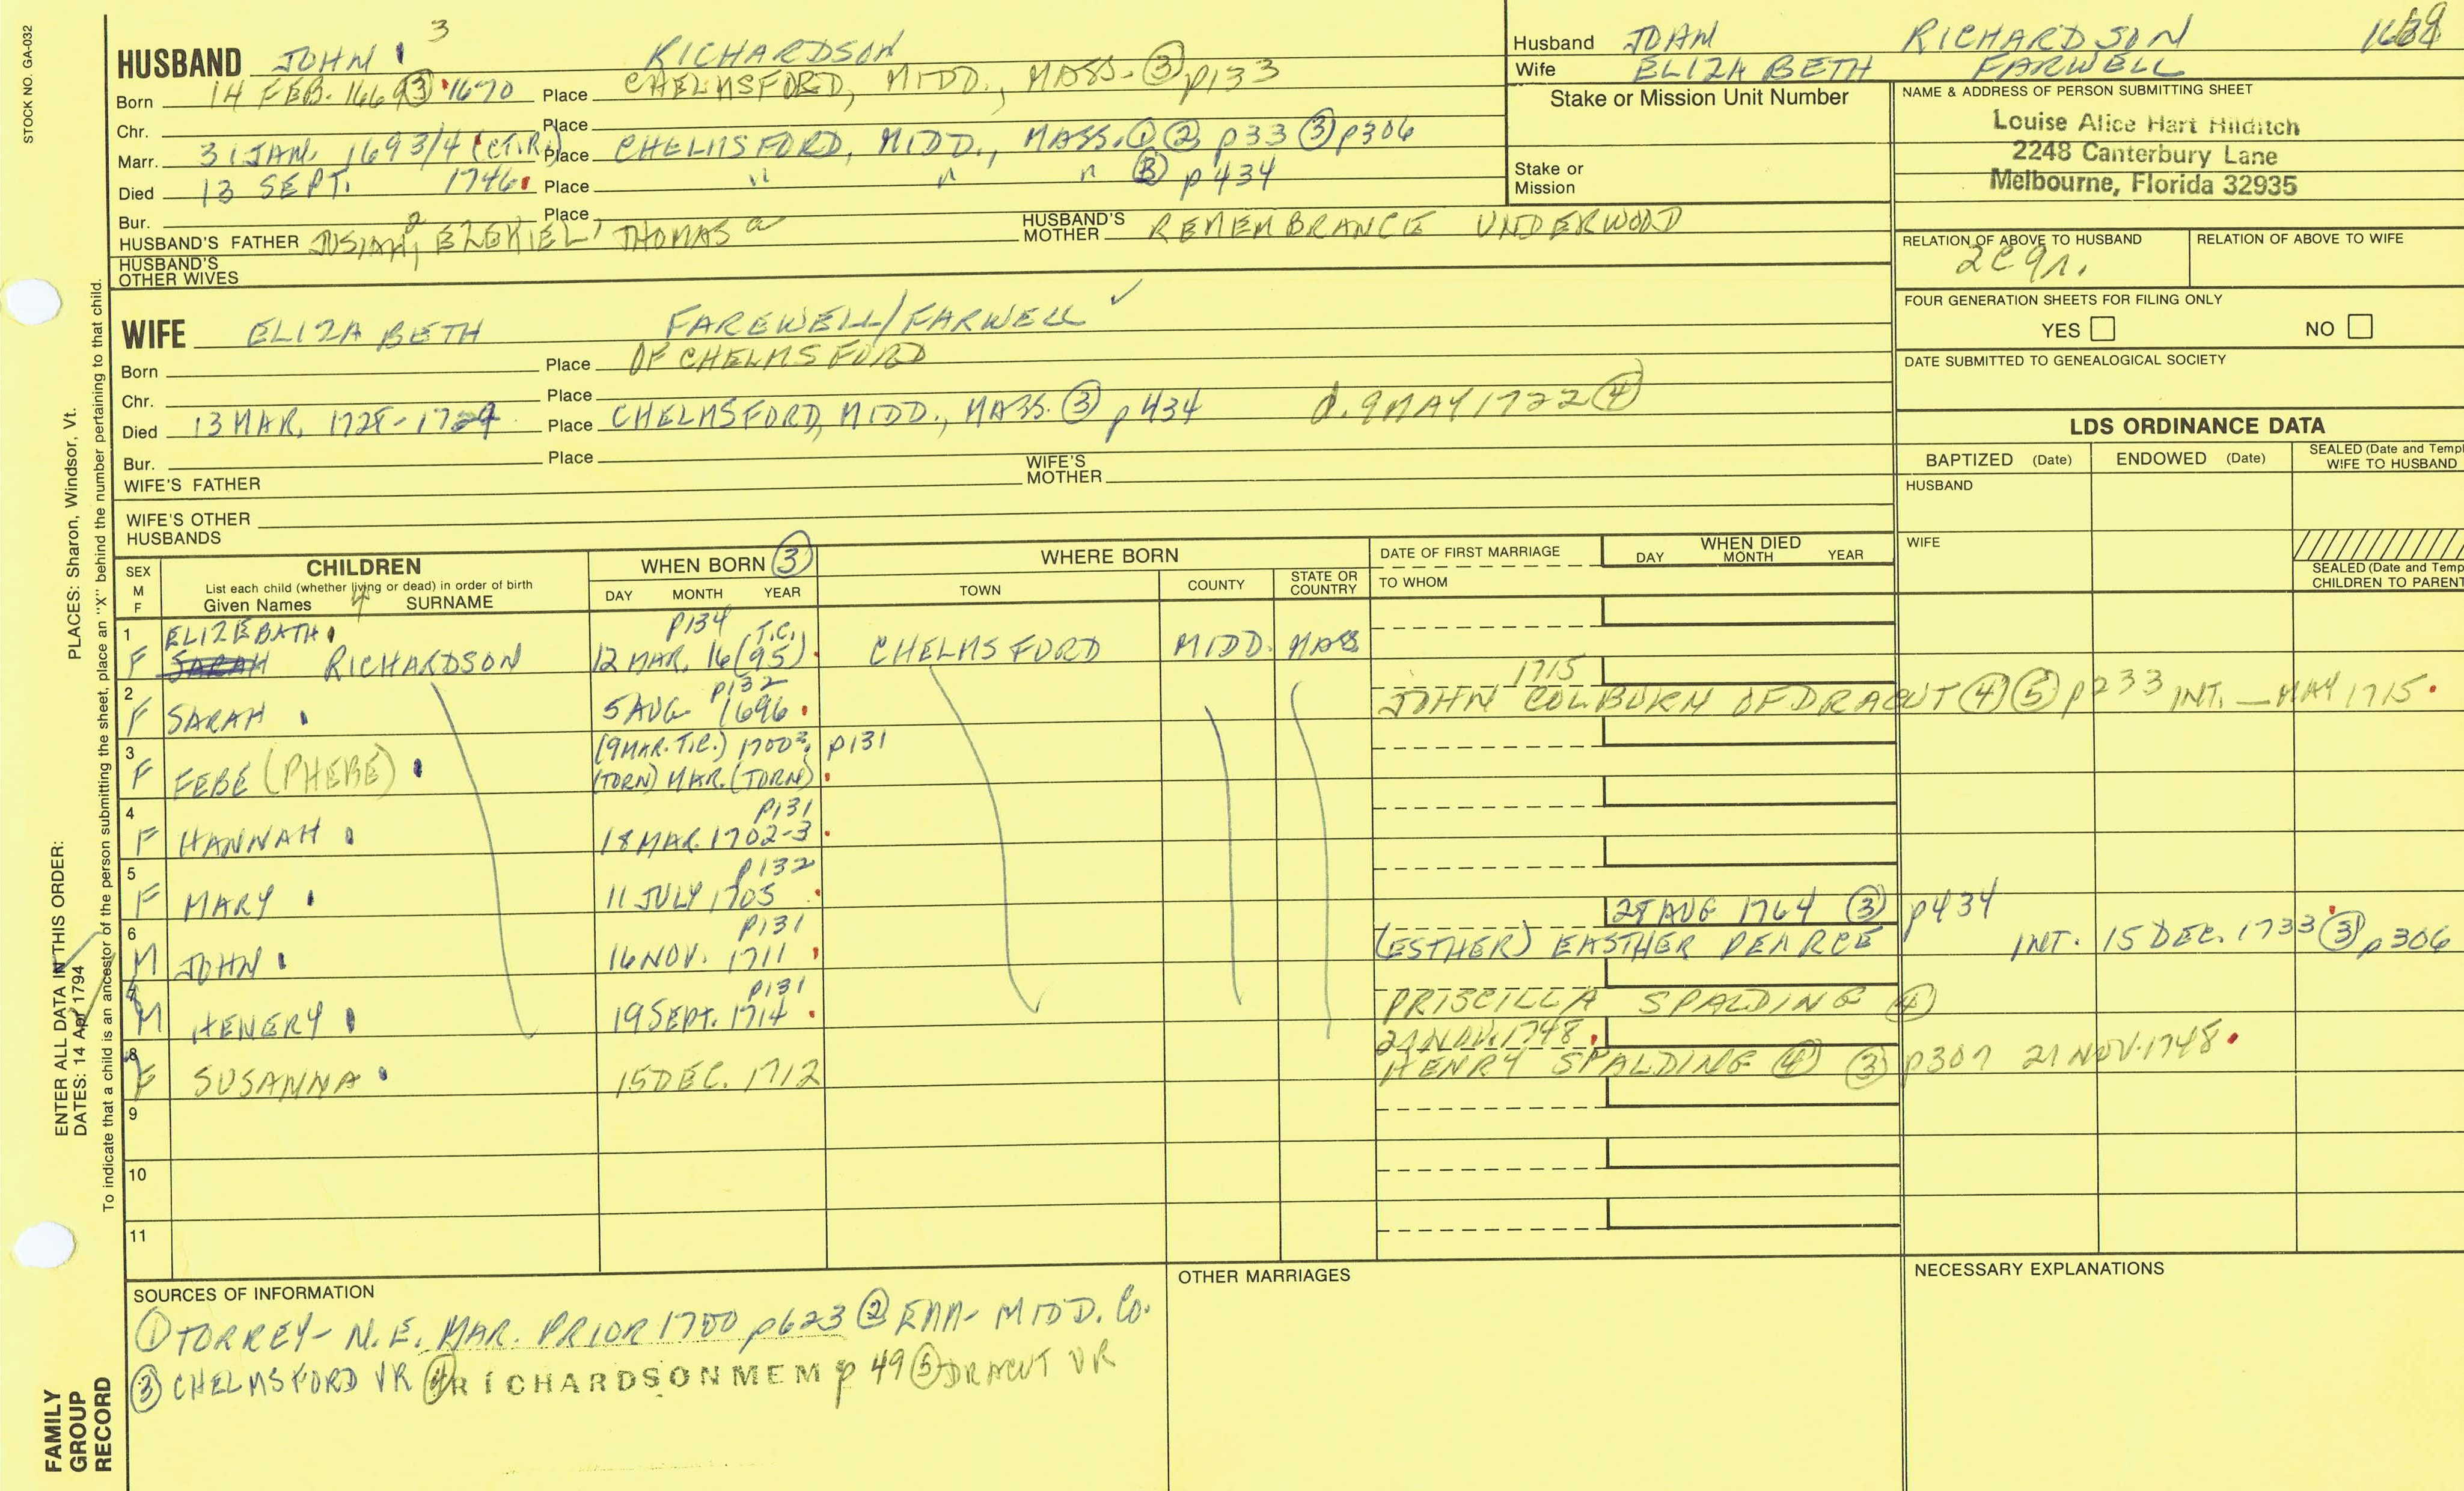 STOCK NO. GA-032
HUSBAND JOHN 3 RICHARDSON
Born 14 FEB. 1669 ③ 1670 Place CHELMSFORD, MIDD., MASS. ③ p133
Chr. Place
Marr. 31 JAN. 1693/4 (CT.R.) Place CHELMSFORD, MIDD., MASS. ① ② p33 ③ p306
Died 13 SEPT. 1746 Place " " " ③ p434
Bur. Place
HUSBAND'S FATHER JOSIAH 2, EZEKIEL 1, THOMAS a HUSBAND'S MOTHER REMEMBRANCE UNDERWOOD
HUSBAND'S OTHER WIVES
WIFE ELIZABETH FAREWELL/FARWELL ✓
Born Place OF CHELMSFORD
Chr. Place
Died 13 MAR. 1728-1729 Place CHELMSFORD, MIDD., MASS. ③ p434 d. 9 MAY 1722 ④
Bur. Place
WIFE'S FATHER WIFE'S MOTHER
WIFE'S OTHER HUSBANDS
Husband JOHN RICHARDSON
Wife ELIZABETH FARWELL
Stake or Mission Unit Number
Stake or Mission
NAME & ADDRESS OF PERSON SUBMITTING SHEET
Louise Alice Hart Hilditch
2248 Canterbury Lane
Melbourne, Florida 32935
RELATION OF ABOVE TO HUSBAND RELATION OF ABOVE TO WIFE
2C9r.
FOUR GENERATION SHEETS FOR FILING ONLY
YES NO
DATE SUBMITTED TO GENEALOGICAL SOCIETY
LDS ORDINANCE DATA
BAPTIZED (Date) ENDOWED (Date) SEALED (Date and Temp WIFE TO HUSBAND
HUSBAND
WIFE
SEALED (Date and Temp CHILDREN TO PARENT
SEX M F CHILDREN List each child (whether living or dead) in order of birth Given Names 4 SURNAME
WHEN BORN ③ DAY MONTH YEAR
WHERE BORN TOWN COUNTY STATE OR COUNTRY
DATE OF FIRST MARRIAGE TO WHOM
WHEN DIED DAY MONTH YEAR
1 ELIZEBATH p134 T.C.
F SARAH RICHARDSON 12 MAR. 16(95) CHELMSFORD MIDD. MASS
2 p132 1715
F SARAH 5 AUG 1696 JOHN COLBURN OF DRACUT ④ ⑤ p233 INT. — MAY 1715
3 (9 MAR. T.C.) 1700 p131
F FEBE (PHEBE) (TORN) MAR. (TORN)
4 p131
F HANNAH 18 MAR. 1702-3
5 p132
F MARY 11 JULY 1705
6 p131 28 AUG 1764 ③ p434
M JOHN 16 NOV. 1711 (ESTHER) EASTHER PEARCE INT. 15 DEC. 1733 ③ p306
7 p131
M HENERY 19 SEPT. 1714 PRISCILLA SPALDING ④
8 21 NOV. 1748
F SUSANNA 15 DEC. 1712 HENRY SPALDING ④ ③ p307 21 NOV. 1748
9
10
11
SOURCES OF INFORMATION
① TORREY- N.E. MAR. PRIOR 1700 p623 ② EMM- MIDD. Co.
③ CHELMSFORD VR ④ RICHARDSON MEM p 49 ⑤ DRACUT VR
OTHER MARRIAGES
NECESSARY EXPLANATIONS
PLACES: Sharon, Windsor, Vt.
ENTER ALL DATA IN THIS ORDER:
DATES: 14 Apr 1794
To indicate that a child is an ancestor of the person submitting the sheet, place an "X" behind the number pertaining to that child.
FAMILY
GROUP
RECORD